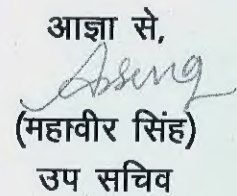 आज्ञा से,
(महावीर सिंह)
उप सचिव